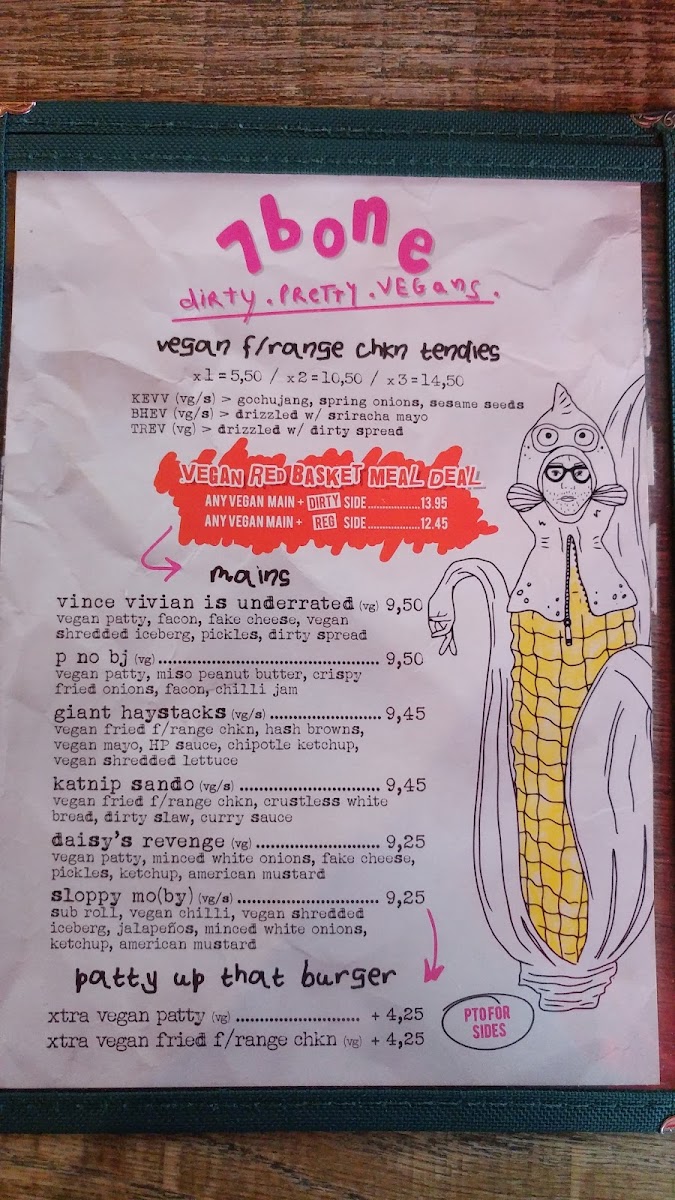 7bone
dirty.pretty.vegans.
vegan f/range chkn tendies
x1=5,50 / x2=10,50 / x3=14,50
KEVV (vg/s) > gochujang, spring onions, sesame seeds
BHEV (vg/s) > drizzled w/ sriracha mayo
TREV (vg) > drizzled w/ dirty spread
VEGAN RED BASKET MEAL DEAL
ANY VEGAN MAIN + DIRTY SIDE..................13.95
ANY VEGAN MAIN + REG SIDE..................12.45
mains
vince vivian is underrated (vg) 9,50
vegan patty, facon, fake cheese, vegan
shredded iceberg, pickles, dirty spread
p no bj (vg)........................................ 9,50
vegan patty, miso peanut butter, crispy
fried onions, facon, chilli jam
giant haystacks (vg/s)...................... 9,45
vegan fried f/range chkn, hash browns,
vegan mayo, HP sauce, chipotle ketchup,
vegan shredded lettuce
katnip sando (vg/s) ........................... 9,45
vegan fried f/range chkn, crustless white
bread, dirty slaw, curry sauce
daisy's revenge (vg) ........................ 9,25
vegan patty, minced white onions, fake cheese,
pickles, ketchup, american mustard
sloppy mo(by) (vg/s) ........................... 9,25
sub roll, vegan chilli, vegan shredded
iceberg, jalapeños, minced white onions,
ketchup, american mustard
patty up that burger
xtra vegan patty (vg) .......................... + 4,25
xtra vegan fried f/range chkn (vg) + 4,25
PTO FOR
SIDES